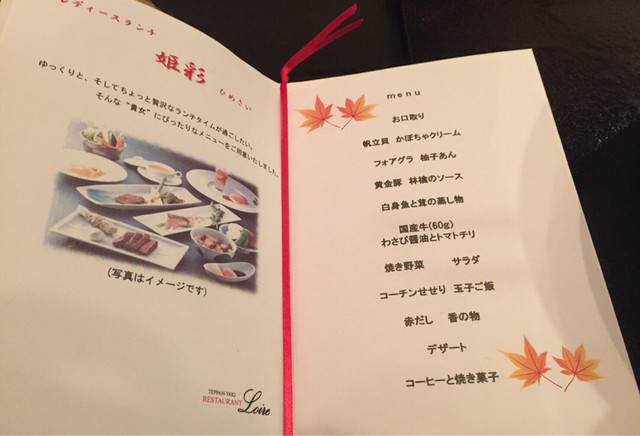 レディースランチ
姫彩
ひめさい
ゆっくりと、そしてちょっと贅沢なランチタイムが過ごしたい。
そんな“貴女”にぴったりなメニューをご用意いたしました。
(写真はイメージです)
TEPPAN-YAKI
RESTAURANT
Loire
menu
お口取り
帆立貝 かぼちゃクリーム
フォアグラ 柚子あん
黄金豚 林檎のソース
白身魚と茸の蒸し物
国産牛(60g)
わさび醤油とトマトチリ
焼き野菜 サラダ
コーチンせせり 玉子ご飯
赤だし 香の物
デザート
コーヒーと焼き菓子